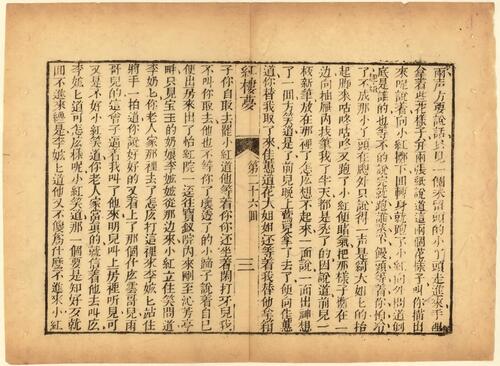 兩聲方要說話只見一個未留頭的小丫頭走進來手裡
拿着些花樣子并兩張紙說道這兩個花樣子叫你描出
來呢說着向小紅擲下回轉身就跑了小紅向外問道倒
底是誰的也等不的說完就跑誰蒸下饅頭等着你怕冷
了不成那小丫頭在窓外只說得一聲是綺大姐匕的抬
起脚來咕咚咕咚又跑了小紅便賭氣把那樣子撂在一
邊向抽屜內找筆找了半天都是禿了的因說道前兒一
枝新筆放在那裡了怎庅想不起來一面說一面出神想
了一回方笑道是了前兒晚上鶯兒拿了去了便向佳蕙
道你替我取了來佳蕙道花大姐姐還等着我替他拿箱
紅樓夢 第二十六回 三
子你自取去罷小紅道他等着你你還坐着閑打牙兒我
不叫你取去他也不等你了壞透了的小蹄子說着自己
便出房來出了怡紅院一逕往寶釵院內來剛至沁芳亭
畔只見寶玉的奶娘李嬷嬷從那邊來小紅立住笑問道
李奶匕你老人家那裡去了怎庅打這裡來李嬷匕站住
將手一拍道你說好好的又看上了那個什庅雲哥兒雨
哥兒的這會子逼着我叫了他來明兒叫上房裡聽見可
又是不好小紅笑道你老人家當真的就信着他去叫庅
李嬷匕道可怎庅樣呢小紅笑道那一個要是知好歹就
回不進來纔是李嬷匕道他又不傻爲什庅不進來小紅